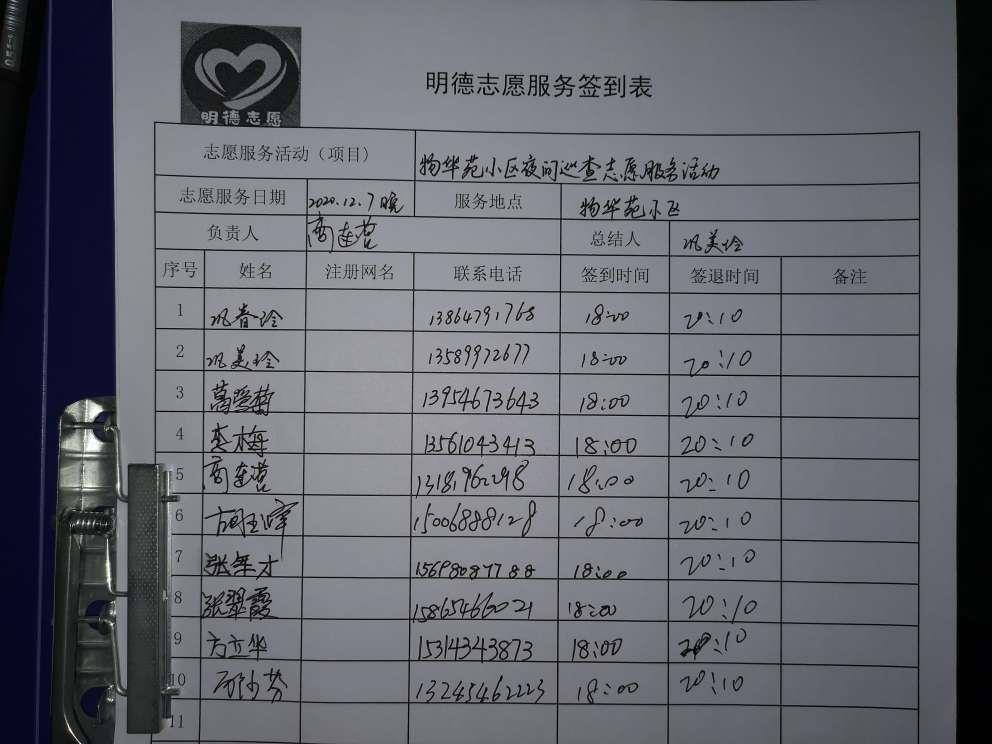 明德志愿
明德志愿服务签到表
志愿服务活动（项目） 物华苑小区夜间巡查志愿服务活动
志愿服务日期 2020.12.7晚 服务地点 物华苑小区
负责人 商连营 总结人 巩美玲
序号 姓名 注册网名 联系电话 签到时间 签退时间 备注
1 巩春玲 13864791768 18:00 20:10
2 巩美玲 13589972677 18:00 20:10
3 13954673643 18:00 20:10
4 李梅 13561043413 18:00 20:10
5 商连营 13181962298 18:00 20:10
6 15006888128 18:00 20:10
7 张军才 15698087788 18:00 20:10
8 张翠霞 15865466021 18:00 20:10
9 方立华 15314343873 18:00 20:10
10 13245462223 18:00 20:10
11